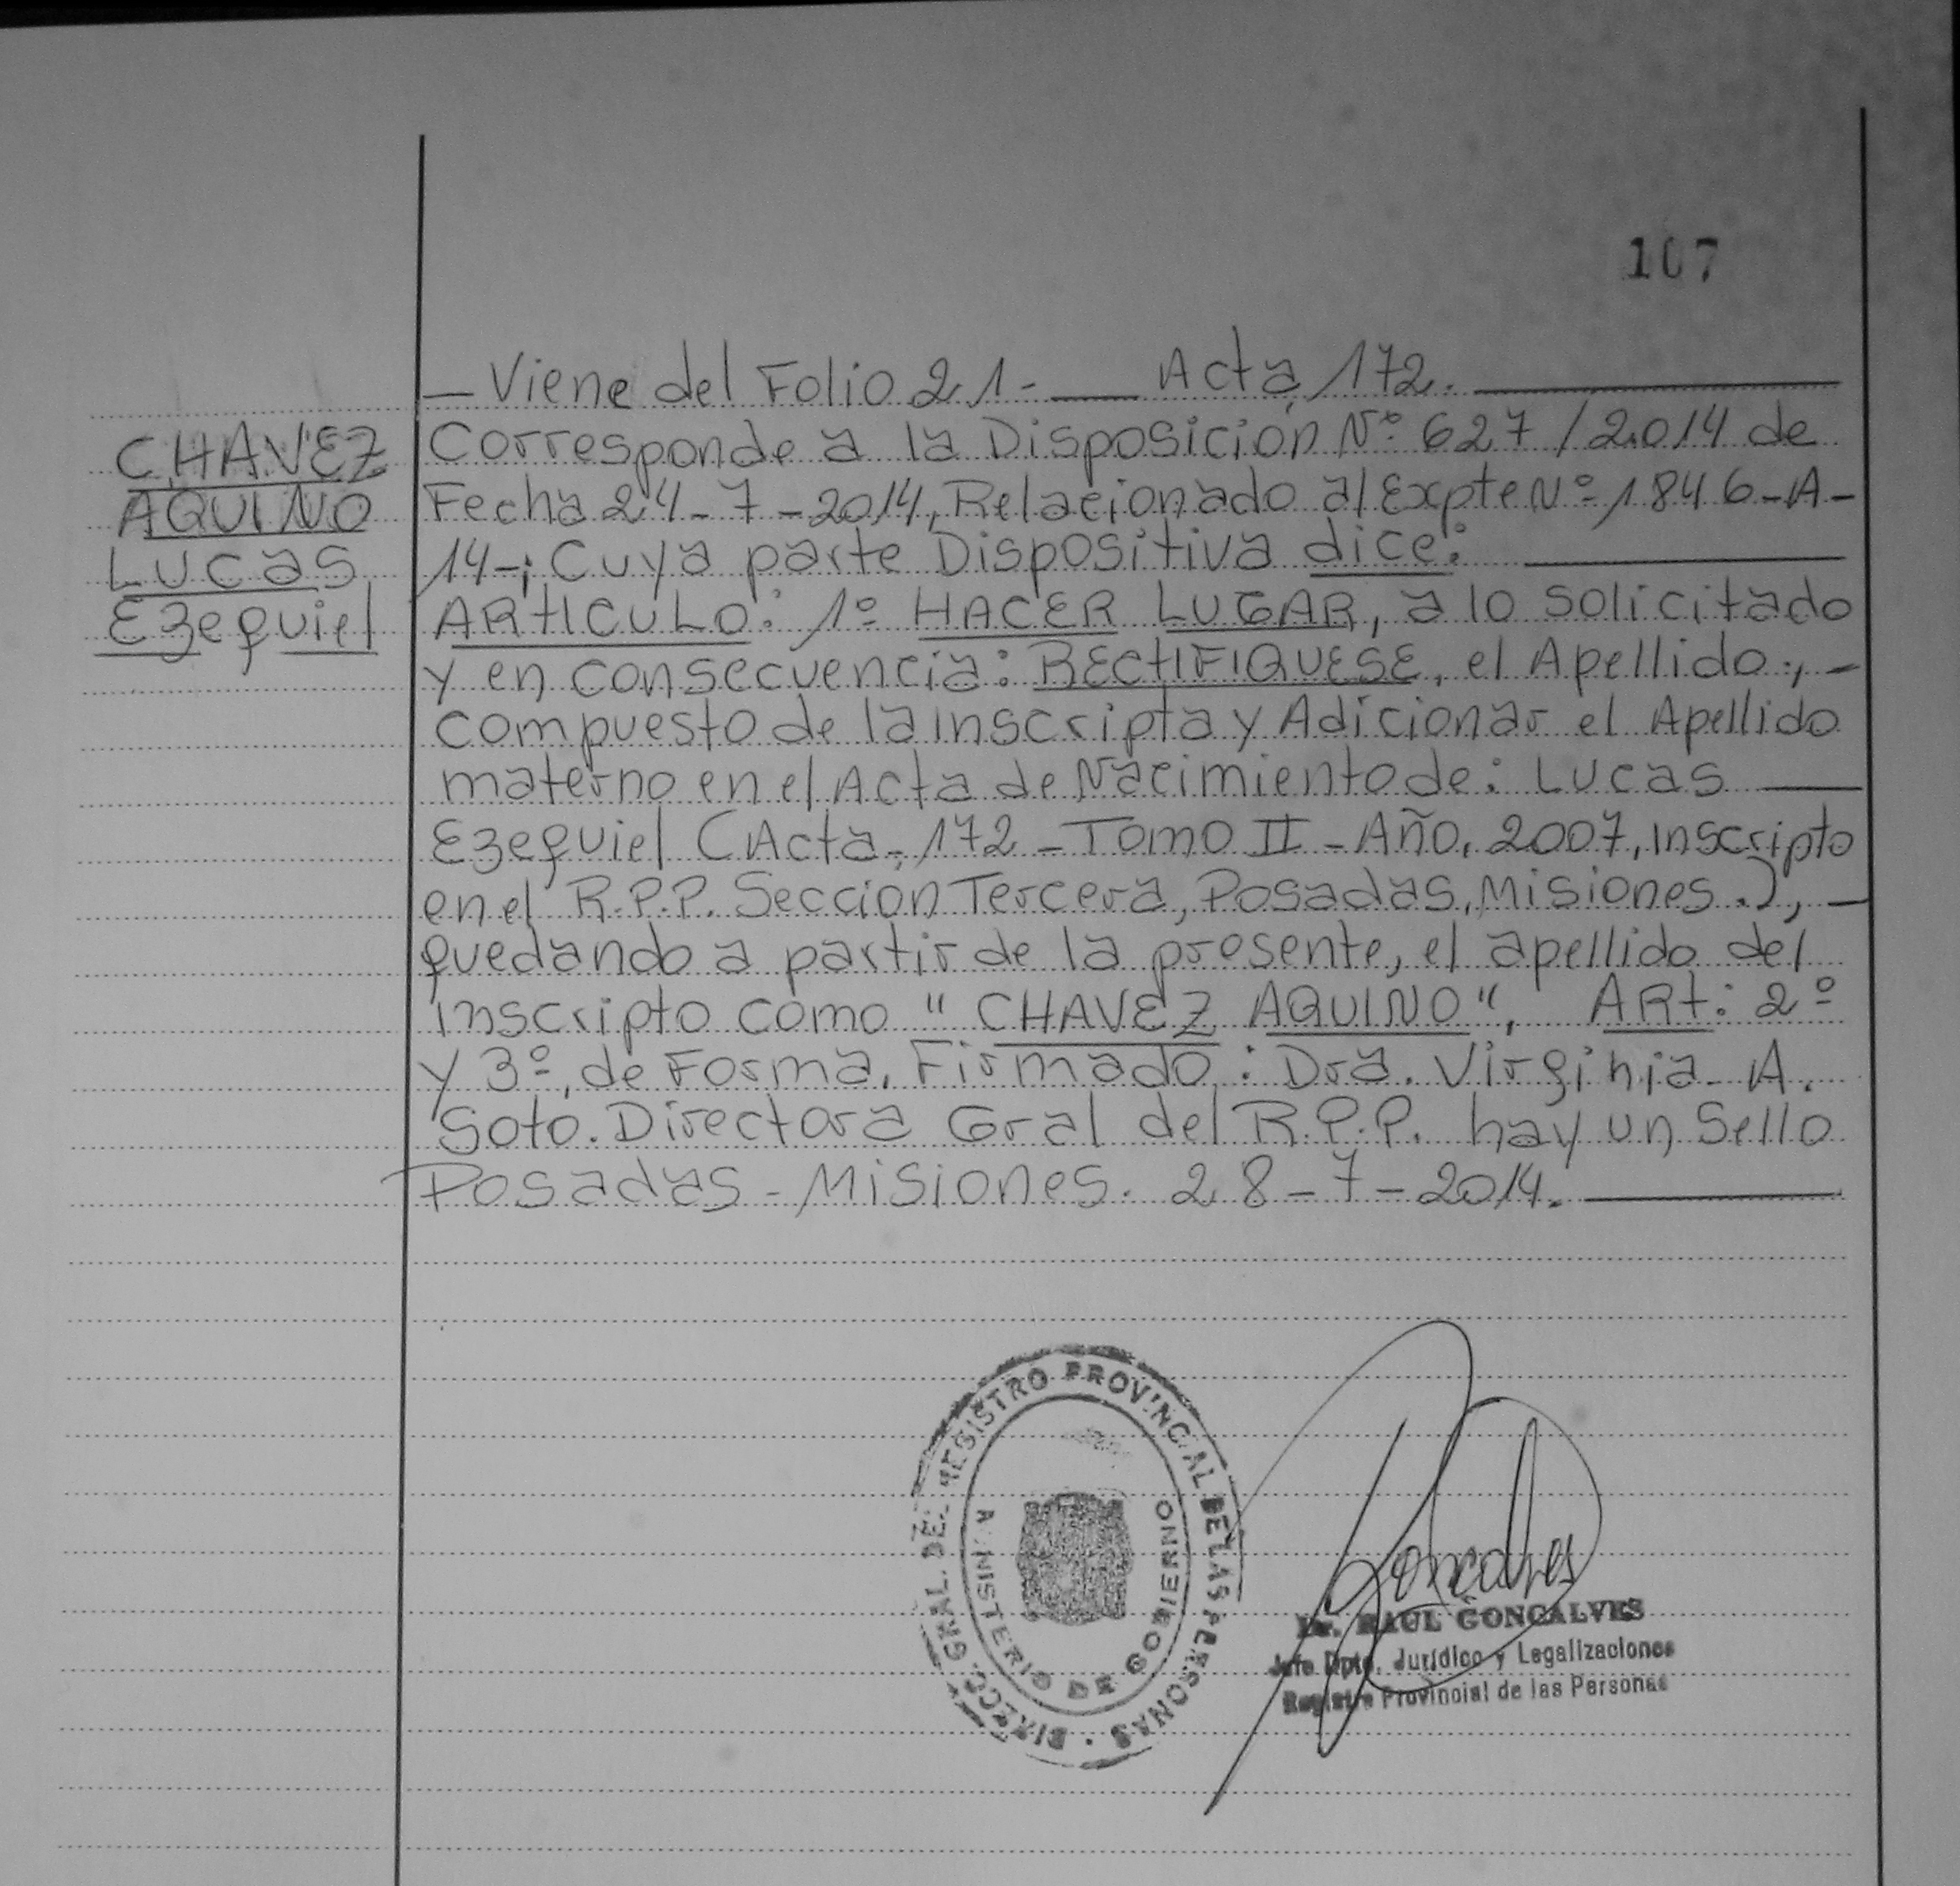 107
— Viene del Folio 21.- — Acta 172. —
CHAVEZ
AQUINO
Lucas
Ezequiel
Corresponde a la Disposición Nº 627/2.014 de
Fecha 24-7-2014, Relacionado al Expte Nº 1846-A-
14-; Cuya parte Dispositiva dice: —
ARTICULO: 1º HACER LUGAR, a lo solicitado
y en consecuencia: RECTIFIQUESE, el Apellido, -
compuesto de la inscripta y Adicionar el Apellido
materno en el Acta de Nacimiento de: Lucas —
Ezequiel (Acta, 172 - Tomo II - Año, 2007, inscripto
en el R.P.P. Sección Tercera, Posadas, Misiones.), —
quedando a partir de la presente, el apellido del
inscripto como "CHAVEZ AQUINO", Art: 2º
y 3º, de Forma, Firmado: Dra. Virginia A.
Soto. Directora Gral del R.P.P. hay un Sello
Posadas - Misiones. 28-7-2014. —
DIRECC. GRAL. DEL REGISTRO PROVINCIAL DE LAS PERSONAS
MINISTERIO DE GOBIERNO
Goncalves
Dr. RAUL GONCALVES
Jefe Dpto. Jurídico y Legalizaciones
Registro Provincial de las Personas